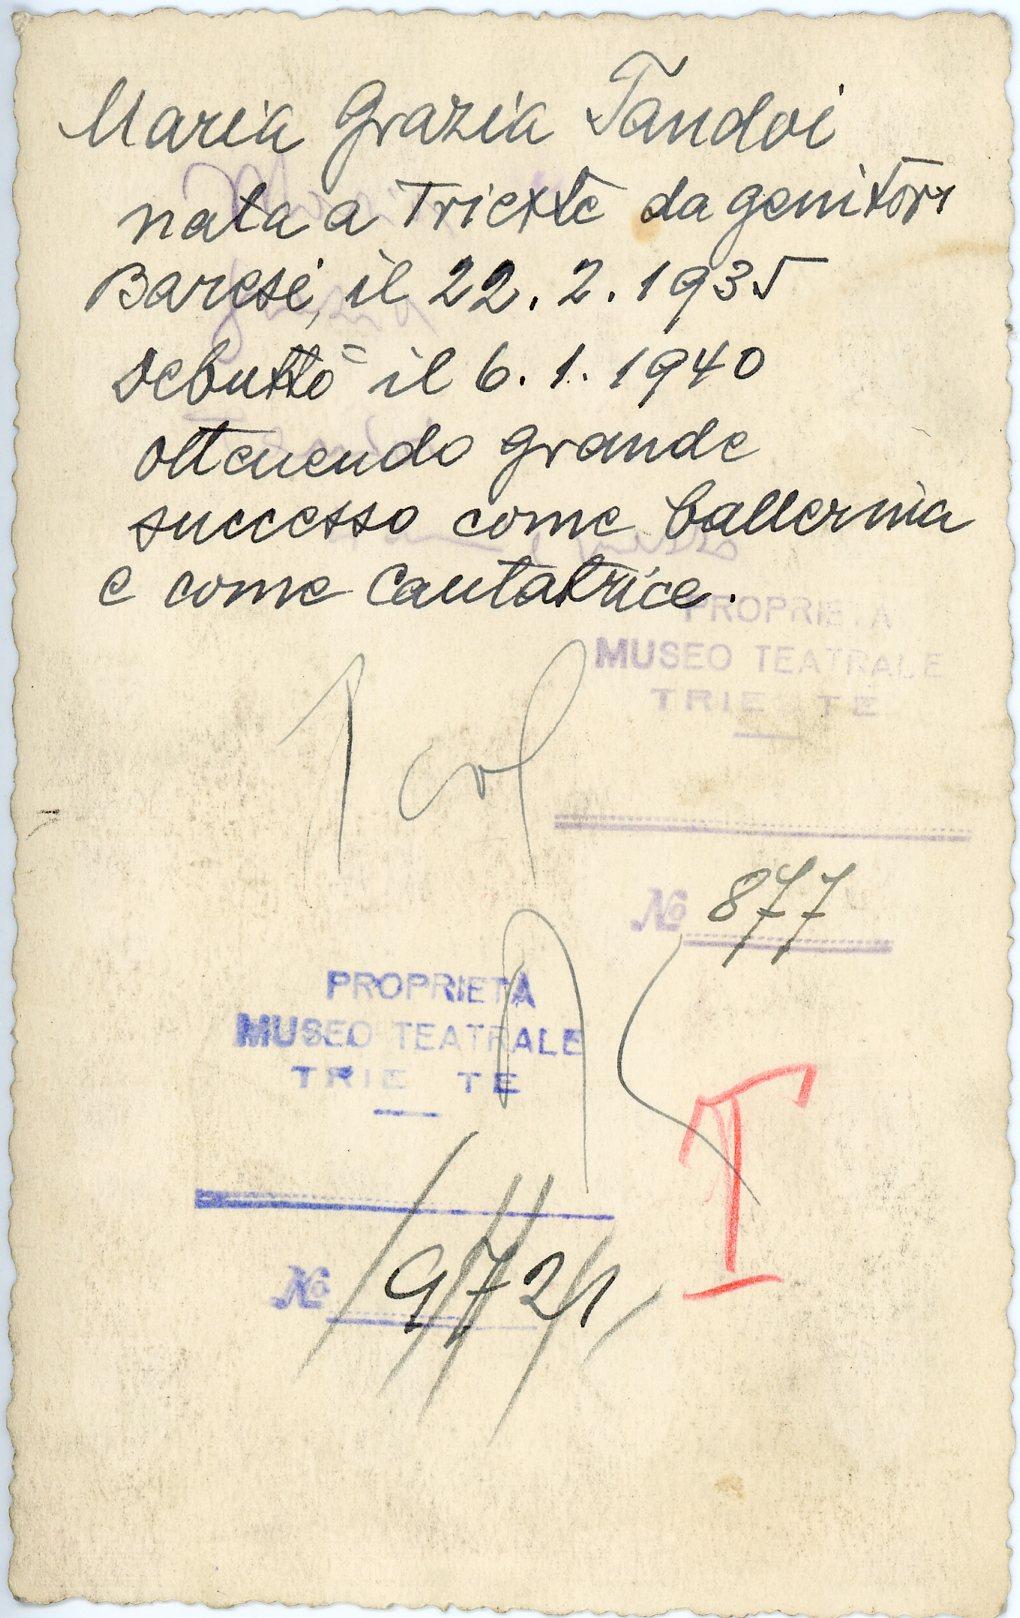 Maria Grazia Tandoi
nata a Trieste da genitori
Baresi, il 22.2.1935
Debuttò il 6.1.1940
ottenendo grande
successo come ballerina
e come cantatrice.
PROPRIETÀ
MUSEO TEATRALE
TRIE TE
1 col
№ 877
PROPRIETÀ
MUSEO TEATRALE
TRIE TE
I
№ 972/1